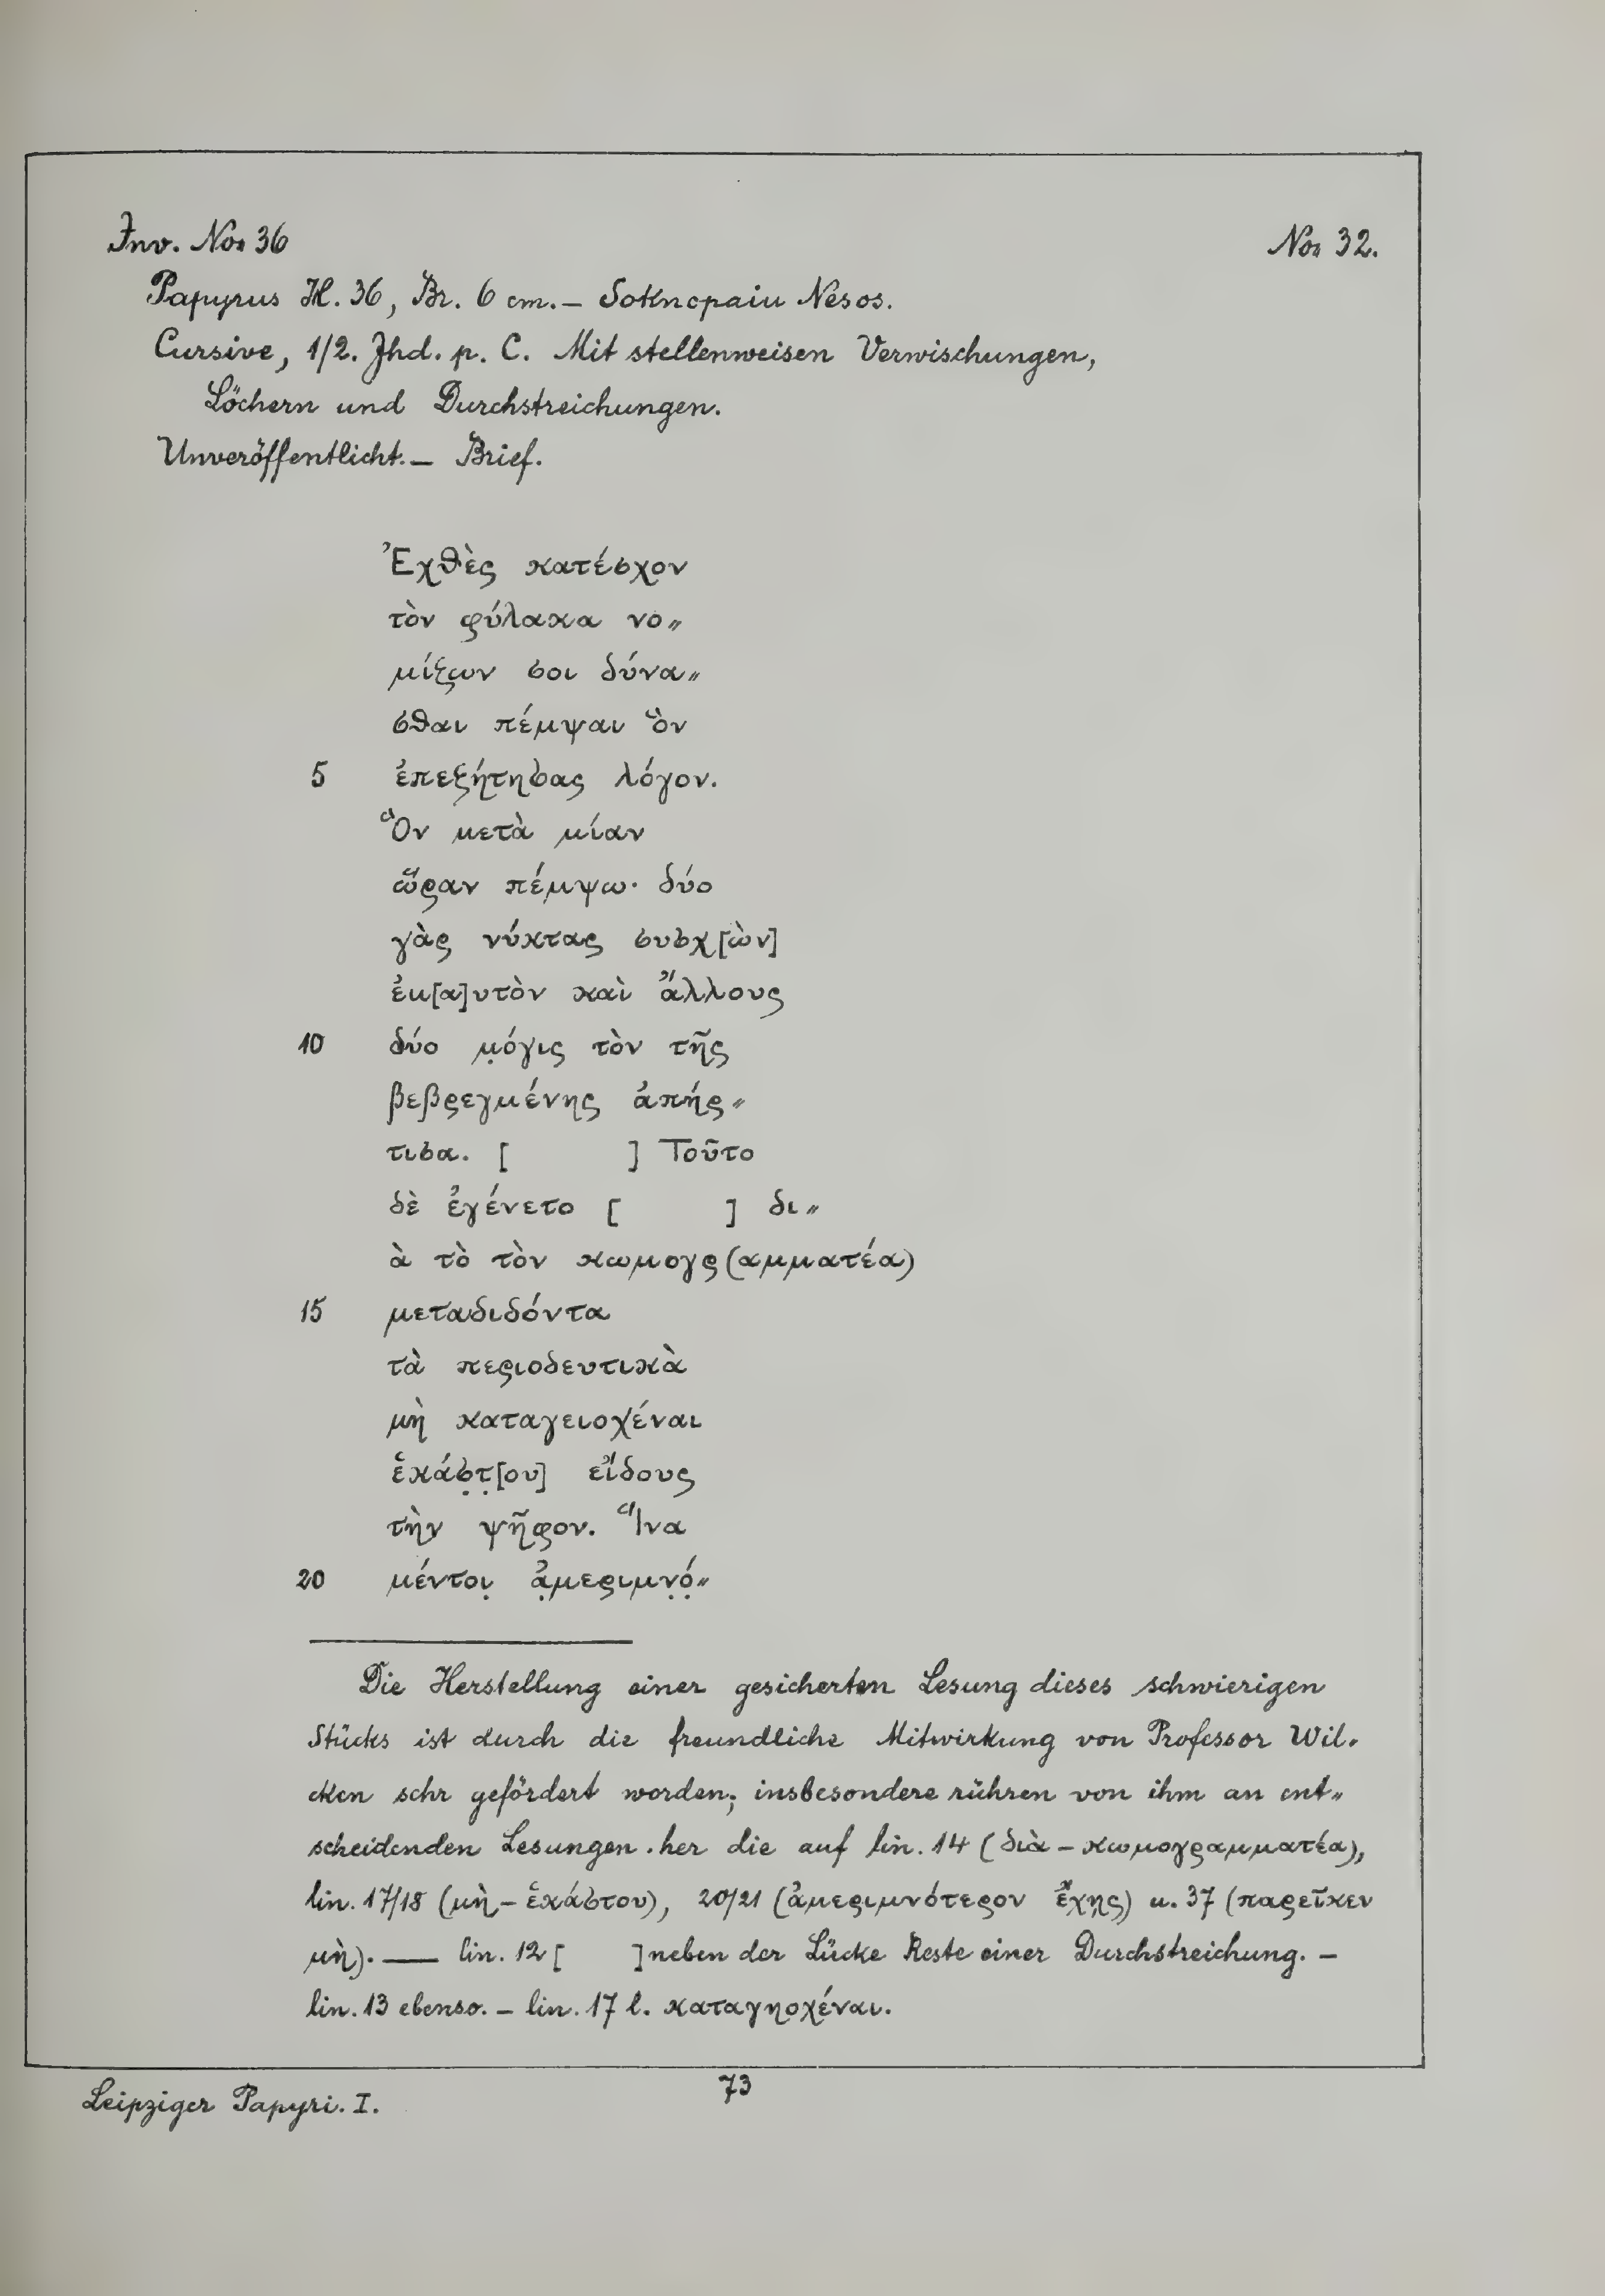 Inv. No. 36
No. 32.
Papyrus H. 36, Br. 6 cm. — Soknopaiu Nesos.
Cursive, 1/2. Jhd. p. C. Mit stellenweisen Verwischungen,
Löchern und Durchstreichungen.
Unveröffentlicht. — Brief.
Ἐχθὲς κατέσχον
τὸν φύλακα νο〃
μίζων σοι δύνα〃
σθαι πέμψαι ὃν
5 ἐπεζήτησας λόγον.
Ὃν μετὰ μίαν
ὥραν πέμψω· δύο
γὰρ νύκτας συσχ[ὼν]
ἐμ[α]υτὸν καὶ ἄλλους
10 δύο μ̣όγις τὸν τῆς
βεβρεγμένης ἀπήρ〃
τισα. [ ] Τοῦτο
δὲ ἐγένετο [ ] δι〃
ὰ τὸ τὸν κωμογρ(αμματέα)
15 μεταδιδόντα
τὰ περιοδευτικὰ
μὴ καταγειοχέναι
ἑκάσ̣τ̣[ου] εἴδους
τὴν ψῆφον. Ἵνα
20 μέντοι̣ ἀ̣μεριμν̣ό̣〃
Die Herstellung einer gesicherten Lesung dieses schwierigen
Stücks ist durch die freundliche Mitwirkung von Professor Wil-
cken sehr gefördert worden; insbesondere rühren von ihm an ent〃
scheidenden Lesungen her die auf lin. 14 (διὰ – κωμογραμματέα),
lin. 17/18 (μὴ – ἑκάστου), 20/21 (ἀμεριμνότερον ἔχῃς) u. 37 (παρεῖκεν
μὴ). — lin. 12 [ ] neben der Lücke Reste einer Durchstreichung. –
lin. 13 ebenso. – lin. 17 l. καταγηοχέναι.
73
Leipziger Papyri. I.